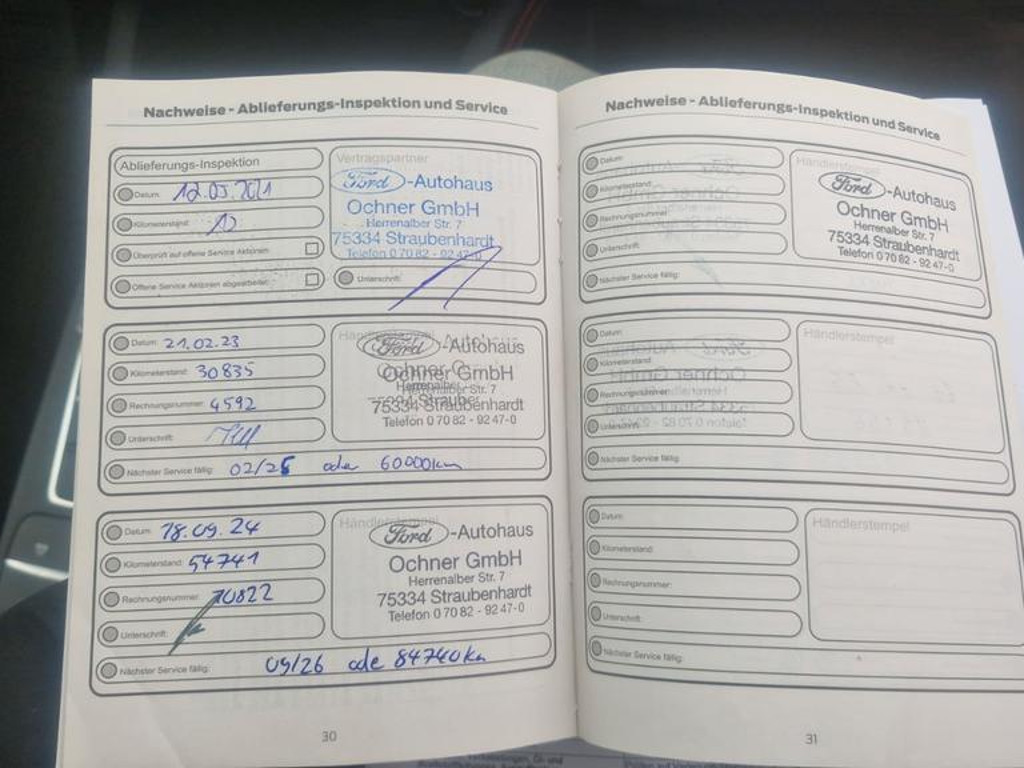 Nachweise - Ablieferungs-Inspektion und Service
Ablieferungs-Inspektion
Datum: 12.03.2021
Kilometerstand: 10
Überprüft auf offene Service Aktionen:
Offene Service Aktionen abgearbeitet:
Vertragspartner
Ford-Autohaus
Ochner GmbH
Herrenalber Str. 7
75334 Straubenhardt
Telefon 0 70 82 - 92 47-0
Unterschrift:
Datum: 21.02.23
Kilometerstand: 30835
Rechnungsnummer: 4592
Unterschrift:
Nächster Service fällig: 02/25 oder 60000km
Händlerstempel
Ford-Autohaus
Ochner GmbH
Herrenalber Str. 7
75334 Straubenhardt
Telefon 0 70 82 - 92 47-0
Datum: 18.09.24
Kilometerstand: 54741
Rechnungsnummer: 70822
Unterschrift:
Nächster Service fällig: 09/26 ode 84740km
Händlerstempel
Ford-Autohaus
Ochner GmbH
Herrenalber Str. 7
75334 Straubenhardt
Telefon 0 70 82 - 92 47-0
30
Nachweise - Ablieferungs-Inspektion und Service
Datum:
Kilometerstand:
Rechnungsnummer:
Unterschrift:
Nächster Service fällig:
Händlerstempel
Ford-Autohaus
Ochner GmbH
Herrenalber Str. 7
75334 Straubenhardt
Telefon 0 70 82 - 92 47-0
Datum:
Kilometerstand:
Rechnungsnummer:
Unterschrift:
Nächster Service fällig:
Händlerstempel
Datum:
Kilometerstand:
Rechnungsnummer:
Unterschrift:
Nächster Service fällig:
Händlerstempel
31